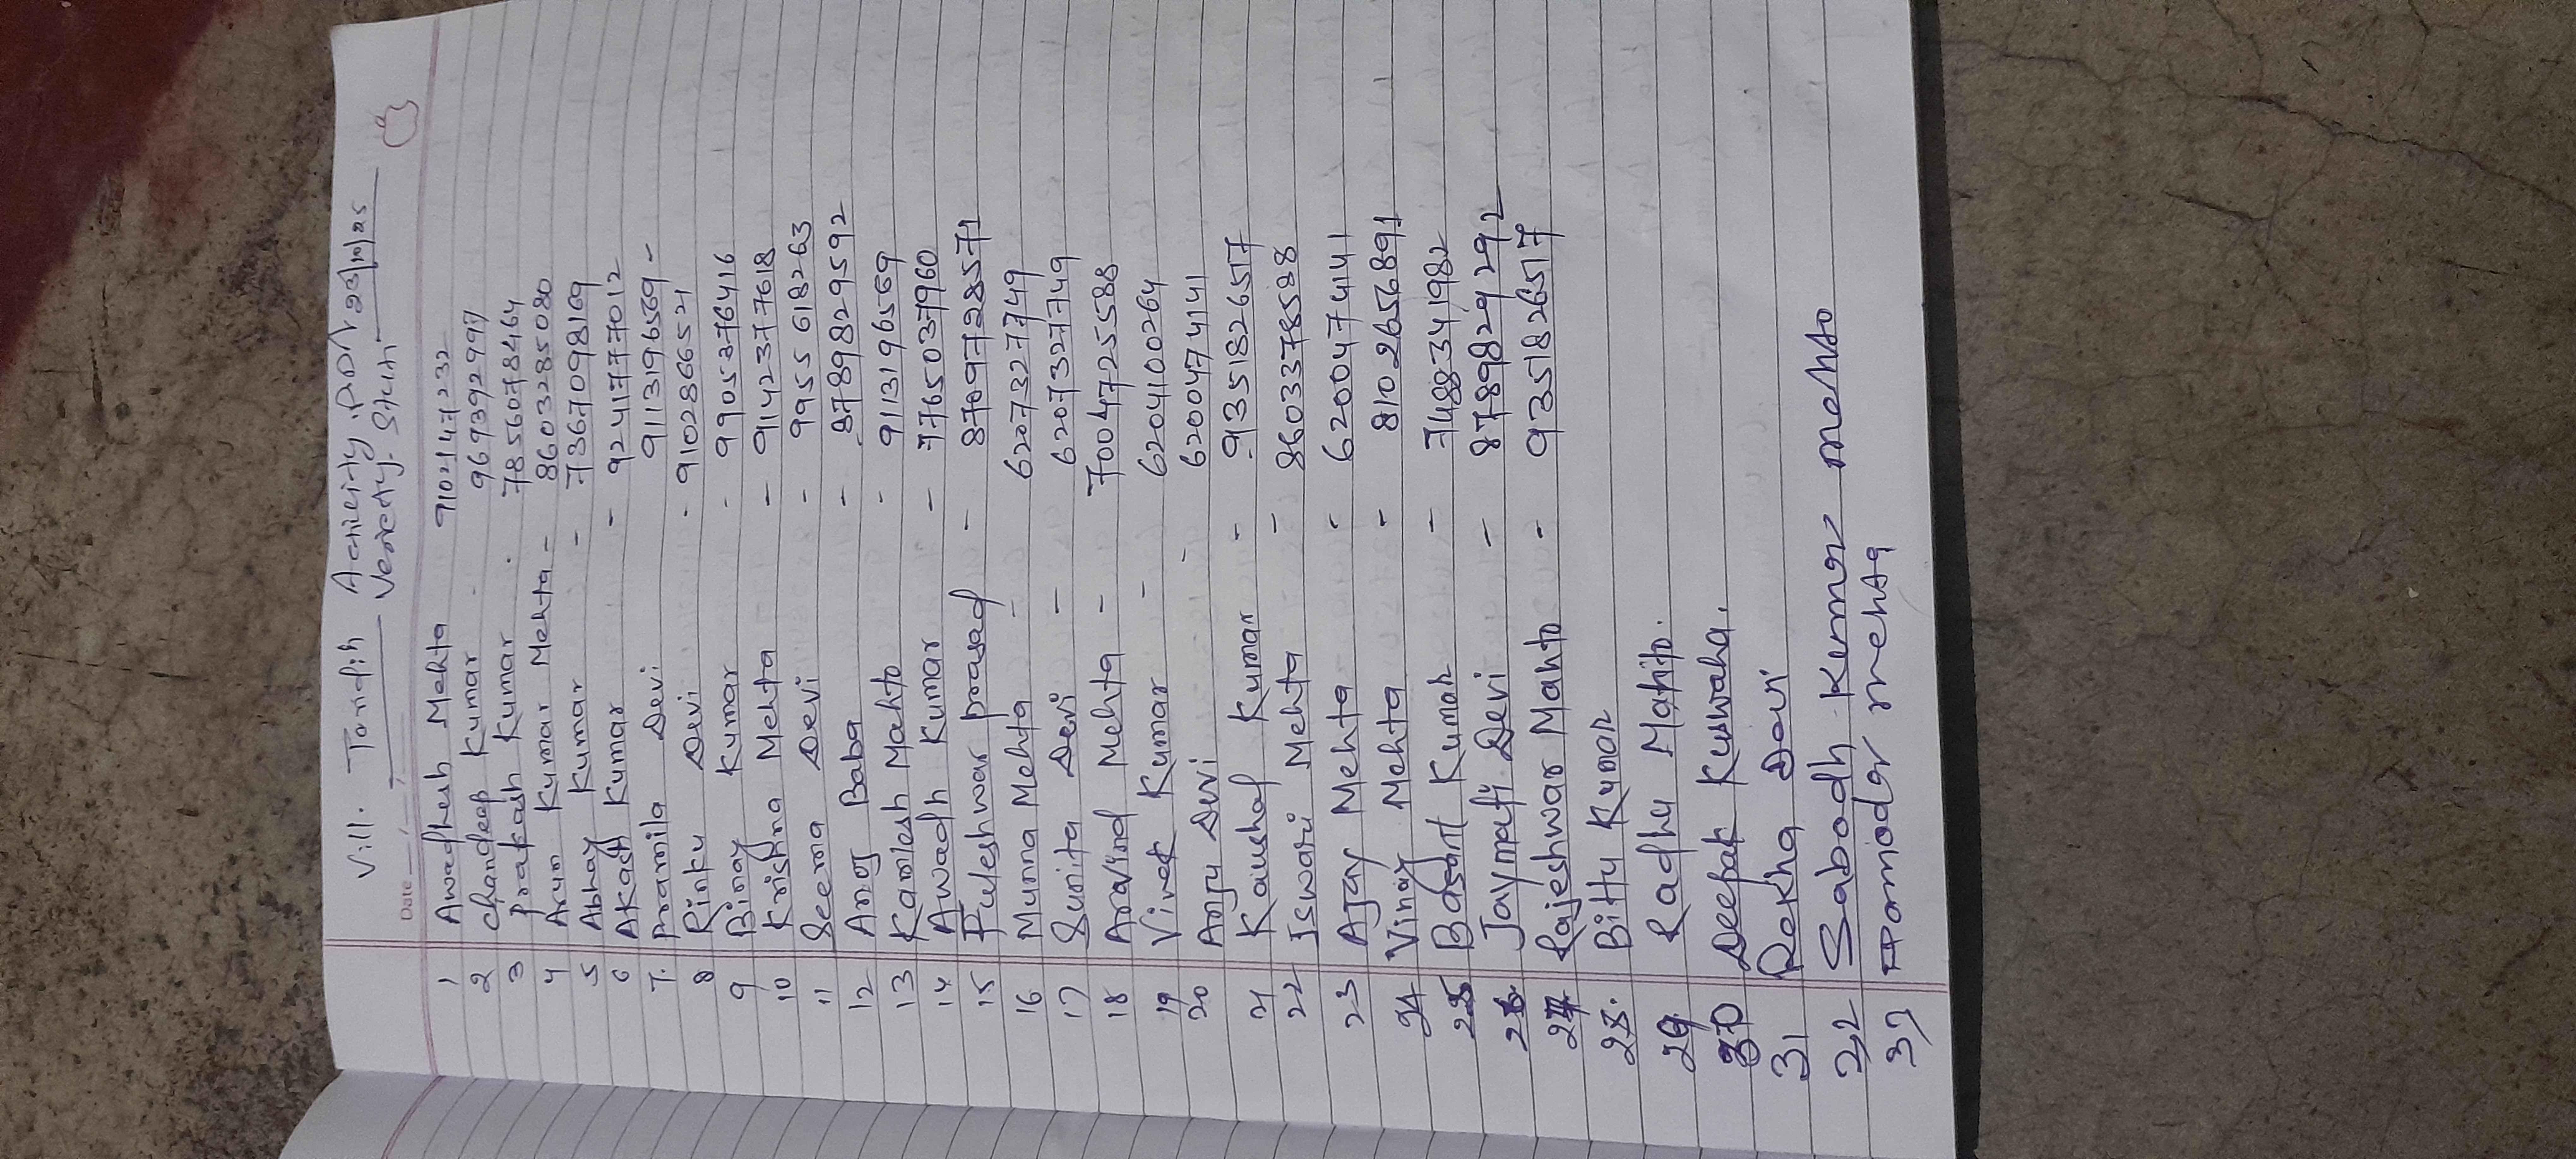 Vill. Tandih Activity. PDA 23/10/25
Date Veriety. Stuti
1 Awadhesh Mehta 9102147232
2 Chandeep Kumar - 9693929997
3 prakash Kumar - 7856078464
4 Arun Kumar Mehta - 8603285080
5 Abhay Kumar - 7367098169
6 Akash Kumar - 9241777012
7. Pramila Devi 9113196569 -
8 Rinku Devi - 9102866521
9 Binay Kumar - 9905376416
10 Krishna Mehta - 9142377618
11 Seema Devi - 9955618263
12 Baba - 8789829592
13 Kamlesh Mahto - 9113196569
14 Awadh Kumar - 7765037960
15 Fuleshwar prasad - 8709728571
16 Munna Mehta - 6207327749
17 Sunita Devi - 6207327749
18 Aravind Mehta - 7004725588
19 Vivek Kumar - 6204100264
20 Anju Devi - 6200474141
21 Kaushal Kumar - 9351826517
22 Iswari Mehta - 8603378588
23 Ajay Mehta - 6200474141
24 Vinay Mehta - 8102656891
25 Basant Kumar - 7488341982
26 Jaymati Devi - 8789829292
27 Rajeshwar Mahto - 9351826517
28. Bittu Kumar
29 Radhe Mahto.
30 Deepak Kuswaha.
31 Rekha Davi
32 Sabodh Kumar mehta
mehta